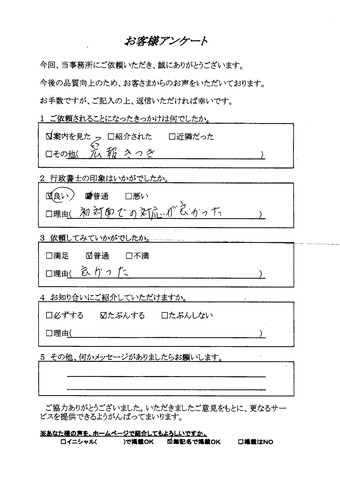 お客様アンケート
今回、当事務所にご依頼いただき、誠にありがとうございます。
今後の品質向上のため、お客さまからのお声をいただいております。
お手数ですが、ご記入の上、返信いただければ幸いです。
1 ご依頼されることになったきっかけは何でしたか。
☑案内を見た □紹介された □近隣だった
□その他( 広報きつき )
2 行政書士の印象はいかがでしたか。
☑良い ☑普通 □悪い
□理由( 初対面での対応が良かった )
3 依頼してみていかがでしたか。
□満足 ☑普通 □不満
□理由( 良かった )
4 お知り合いにご紹介していただけますか。
□必ずする ☑たぶんする □たぶんしない
□理由( )
5 その他、何かメッセージがありましたらお願いします。
ご協力ありがとうございました。いただきましたご意見をもとに、更なるサー
ビスを提供できるようがんばってまいります。
※あなた様の声を、ホームページで紹介してもよろしいですか。
□イニシャル( )で掲載OK ☑無記名で掲載OK □掲載はNO